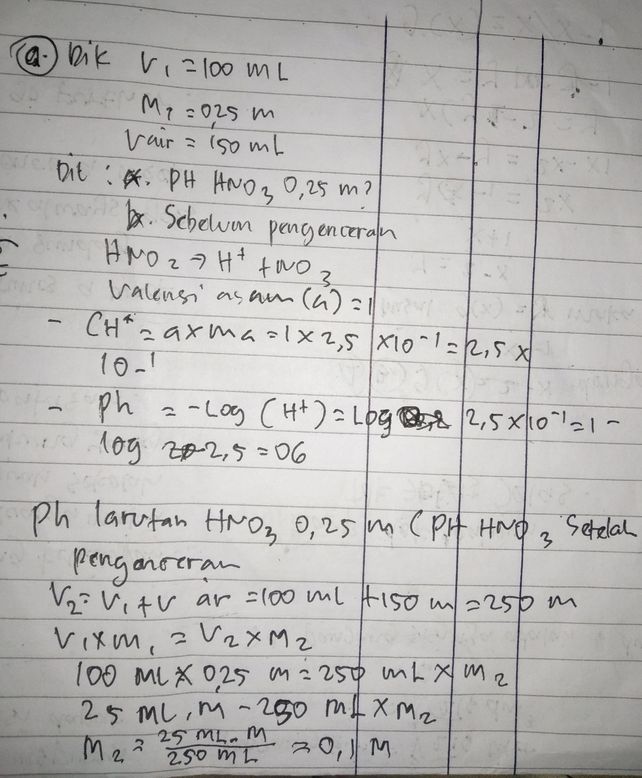 a. Dik V₁ = 100 mL
M₁ = 0,25 m
V air = 150 mL
Dit : a. PH HNO₃ 0,25 m?
b. Sebelum pengenceran
HNO₂ → H⁺ + NO₃
Valensi asam (a) = 1
- CH⁺ = a x ma = 1 x 2,5 x10⁻¹ = 2,5 x
10-1
- Ph = -Log (H⁺) = Log 2,5 x 10⁻¹ = 1 -
log 2,5 = 06
Ph larutan HNO₃ 0,25 m (PH HNO₃ Setelah
pengenceran
V₂ = V₁ + V air = 100 ml + 150 m = 250 m
V₁ x m₁ = V₂ x M₂
100 ML x 0,25 m = 250 mL x m₂
25 ML . M - 250 mL x M₂
M₂ = 25 mL . M / 250 mL = 0,1 M